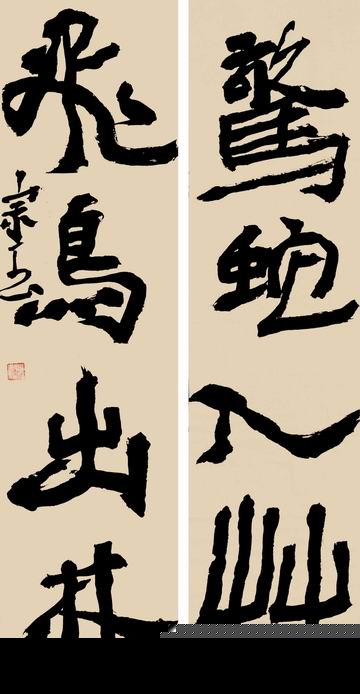 驚蛇入艸
飛鳥出林